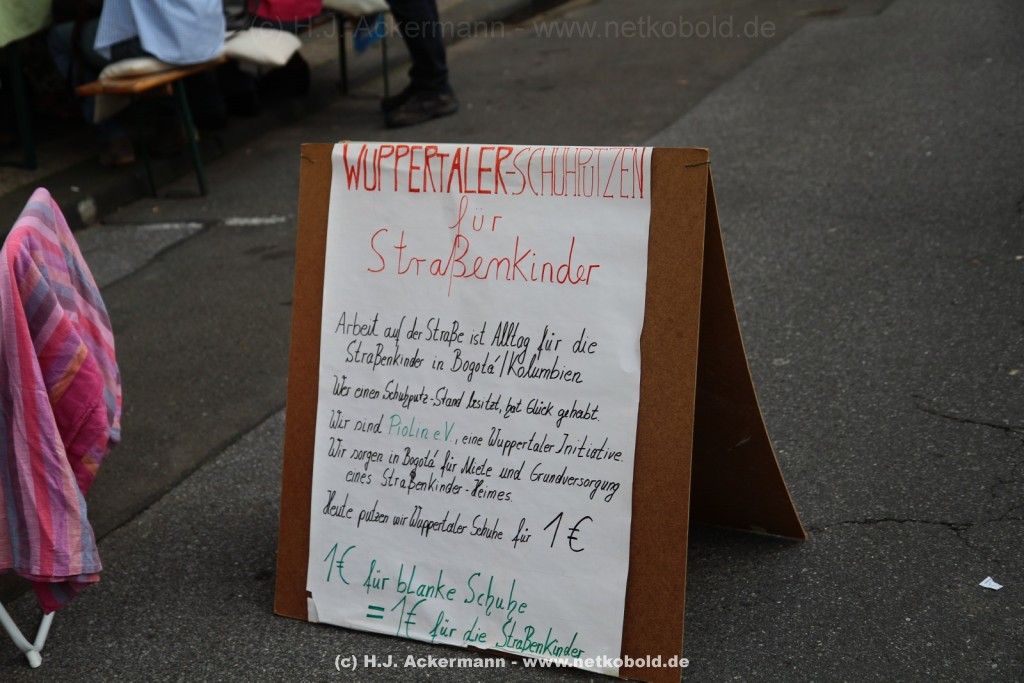 (c) H.J. Ackermann - www.netkobold.de
WUPPERTALER-SCHUHPUTZEN
für
Straßenkinder
Arbeit auf der Straße ist Alltag für die
Straßenkinder in Bogotá/Kolumbien
Wer einen Schuhputz-Stand besitzt, hat Glück gehabt.
Wir sind Piolin e.V., eine Wuppertaler Initiative.
Wir sorgen in Bogotá für Miete und Grundversorgung
eines Straßenkinder-Heimes.
Heute putzen wir Wuppertaler Schuhe für 1€
1€ für blanke Schuhe
= 1€ für die Straßenkinder
(c) H.J. Ackermann - www.netkobold.de